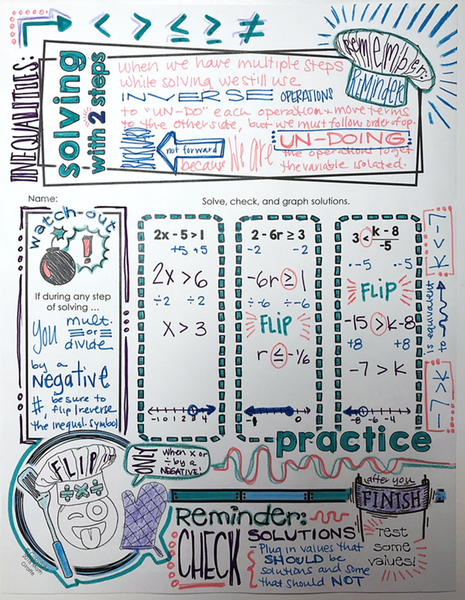 < > ≤ ≥ ≠
Remember:
Reminder
INEQUALITIES:
solving
with 2 steps
when we have multiple steps
while solving we still use
INVERSE OPERATIONS
to "UN-DO" each operation + move terms
to the other side, but we must follow order of op.
BACKWARD
not forward
because We are UN-DOING
the operations to get
the variable isolated.
Name:
Solve, check, and graph solutions.
watch-out
!
If during any step
of solving ...
you mult.
or
divide
by a
Negative
#, be sure to
flip/reverse
the inequal. symbol
2x - 5 > 1
+5 +5
2x > 6
÷2 ÷2
x > 3
-1 0 1 2 3 4
2 - 6r ≥ 3
-2 -2
-6r ≥ 1
÷-6 ÷-6
FLIP
r ≤ -1/6
-1 0 1
3 < k - 8
-5
·-5 ·-5
FLIP
-15 > k-8
+8 +8
-7 > k
-8 -6 -4 -2 0
k < -7
is equivalent
to
-7 > k
practice
FLIP
ONLY
when × or
÷ by a
NEGATIVE!
after you
FINISH
Test
some
values!
Reminder:
CHECK
SOLUTIONS
Plug in values that
SHOULD be
solutions and some
that should NOT